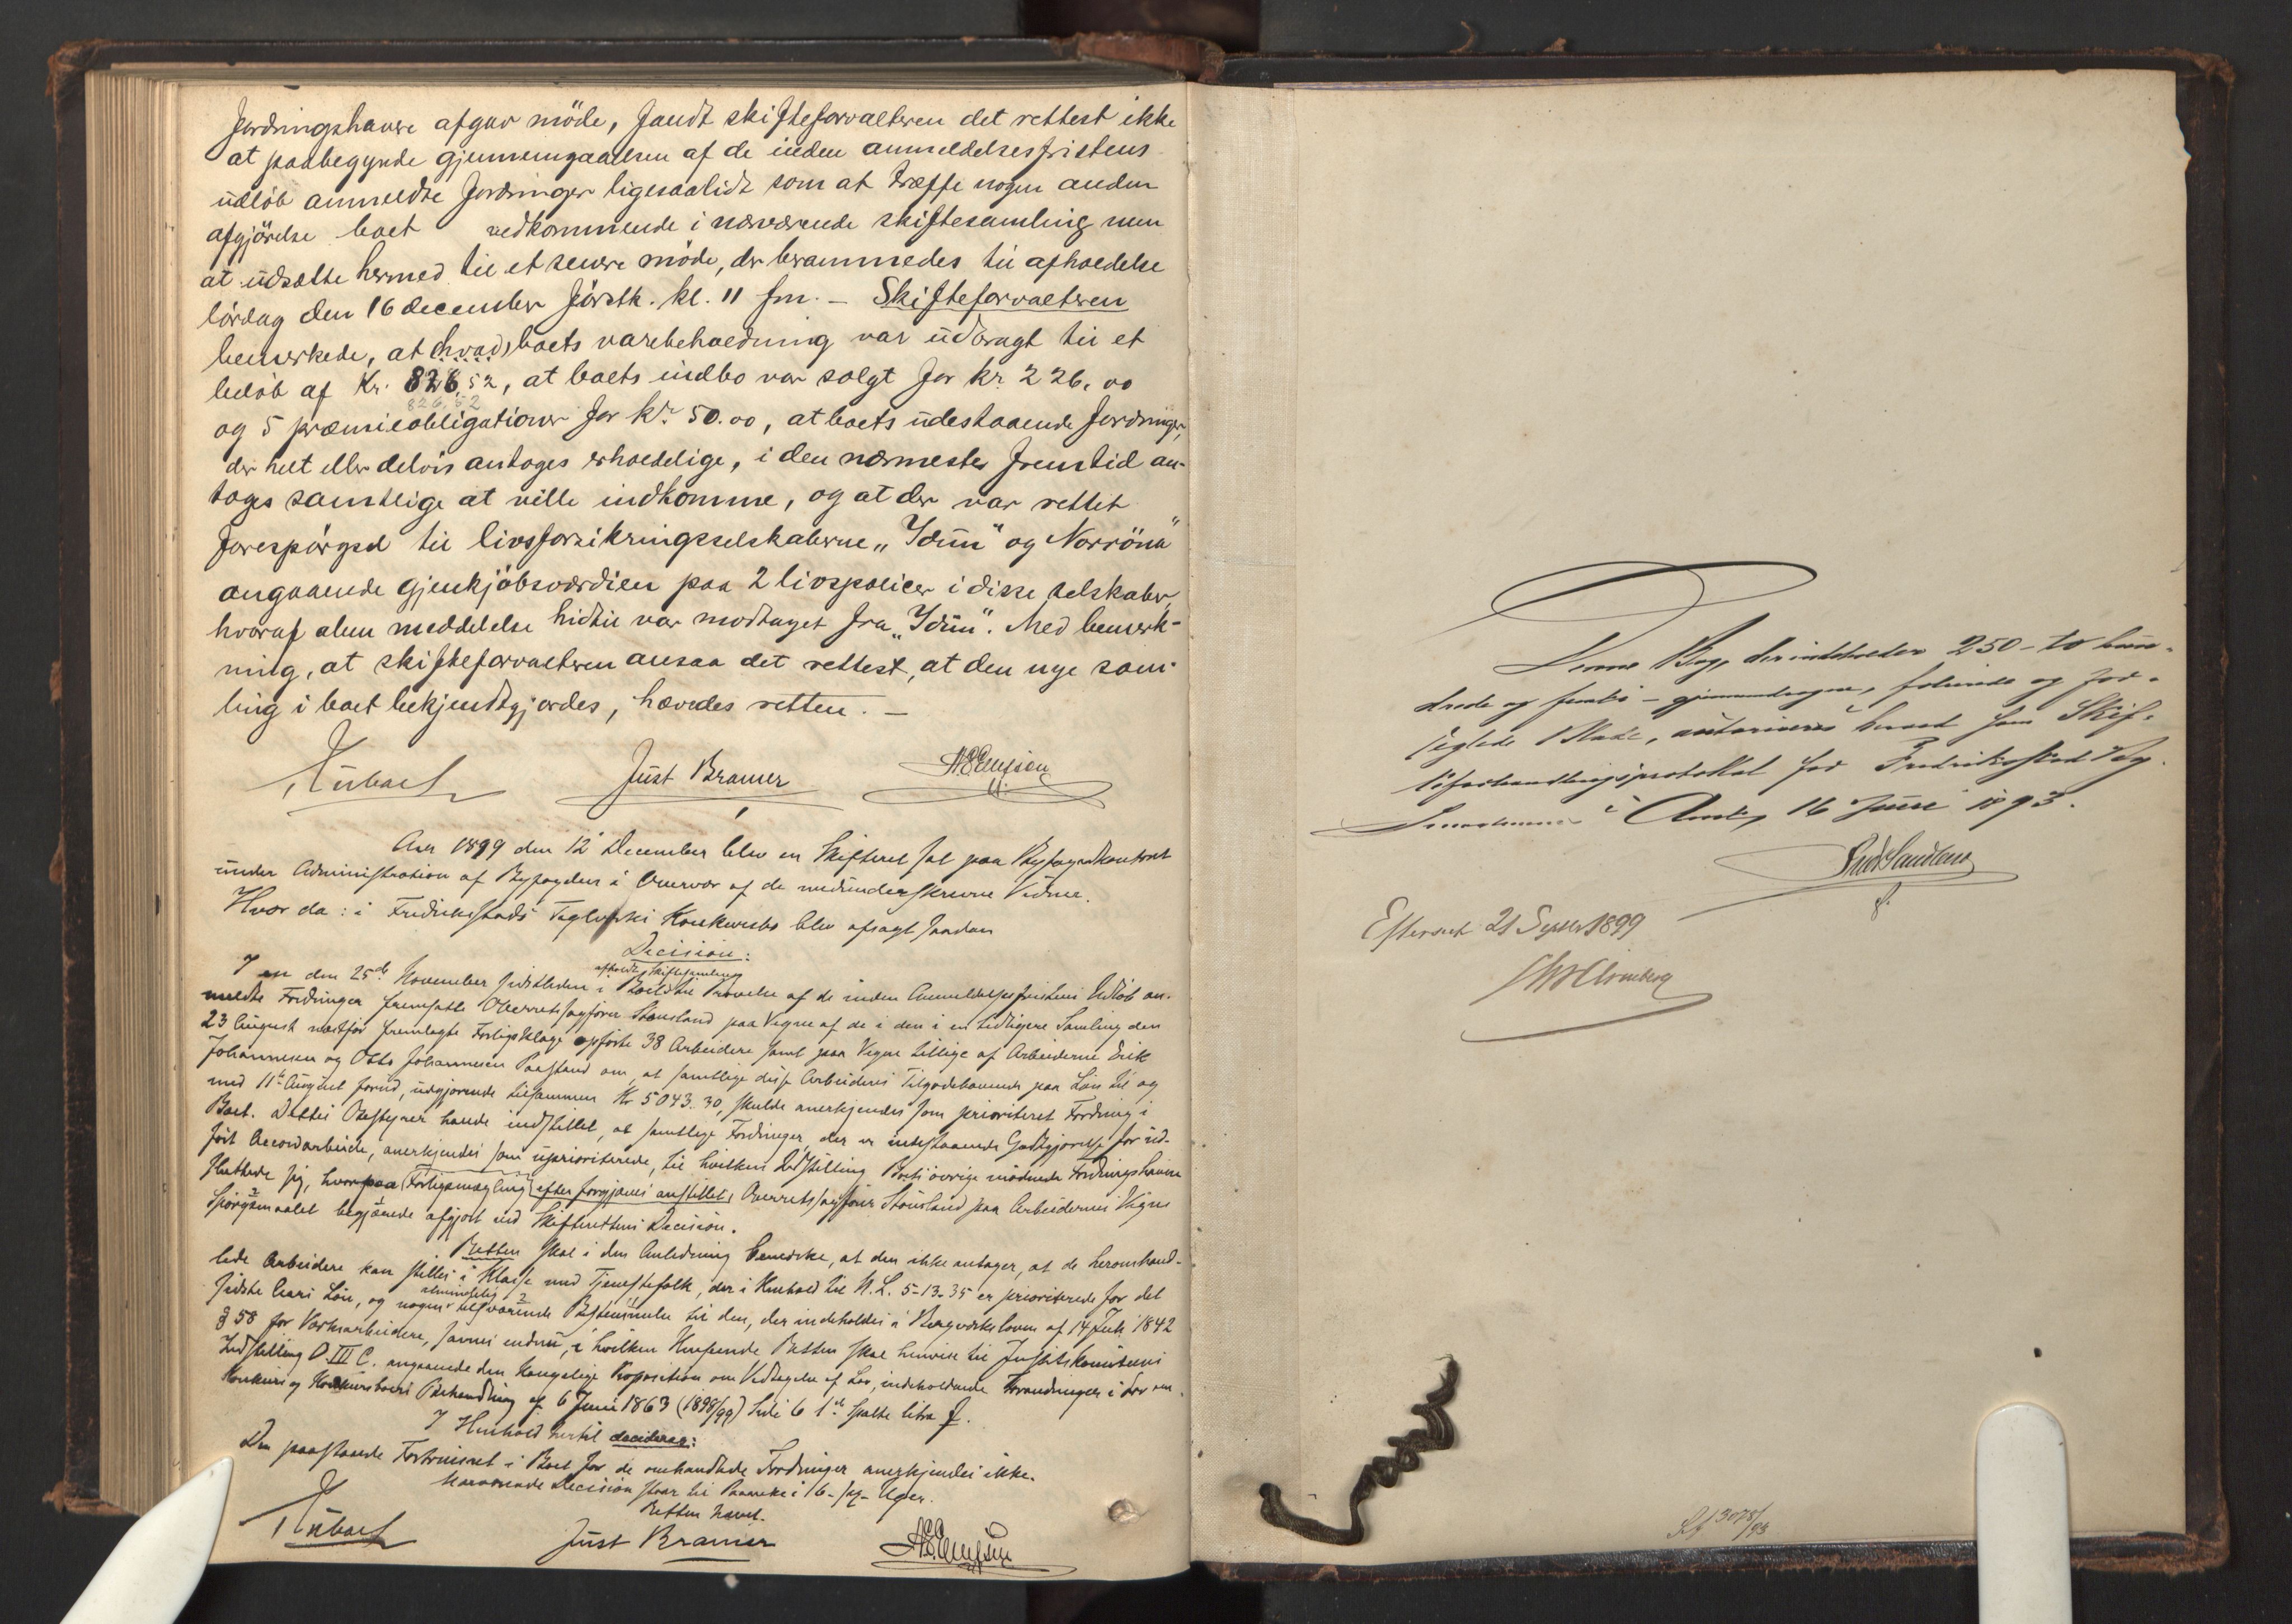 fordringshavere afgav möde, fandt skifteforvalteren det rettest ikke
at paabegynde gjennemgaaelsen af de inden anmeldelsesfristens
udlöb anmeldte fordringer ligesaalidt som at træffe nogen anden
afgjörelse boet vedkommende i nærværende skiftesamling men
at udsætte hermed til et senere möde, der berammedes til afholdelse
lördag den 16 december förstk. kl. 11 fm. – Skifteforvalteren
bemerkede, at (hvad) boets varebeholdning var udbragt til et
belöb af Kr. 826,52, at boets indbo var solgt for kr. 226,00
826,52
og 5 præmieobligationer for kr. 50.00, at boets udestaaende fordringer,
der helt eller delvis antoges erholdelige, i den nærmeste fremtid an-
toges samtlige at ville indkomme, og at der var rettet
forespörgsel til livsforsikringsselskaberne „Idun" og Norröna"
angaaende gjenkjöbsværdien paa 2 livspolicer i disse selskaber,
hvoraf alene meddelelse hidtil var modtaget fra „Idun". Med bemerk-
ning, at skifteforvalteren ansaa det rettest, at den nye sam-
ling i boet bekjendtgjordes, hævedes retten. –
Just Bramer
Aar 1899 den 12 December blev en Skifteret sat paa Byfogedkontoret
under Administration af Byfogden i Overvær af de medunderskrevne Vidner.
Hvor da: i Fredriksstads Teglverks Konkursbo blev afsagt saadan
Decision:
afholdt Skiftesamling
I en den 25de November sidstleden i Boet til Prøvelse af de inden Anmeldelsesfristens Udløb an-
meldte Fordringer fremsatte Overretssagfører Stousland paa Vegne af de i den i en tidligere Samling den
23 August næstfør fremlagte Forligsklage opførte 38 Arbeidere samt paa Vegne tillige af Arbeiderne Erik
Johannesen og Otto Johannesen Paastand om, at samtlige disse Arbeideres Tilgodehavende paa Løn til og
med 11te August forud, udgjørende tilsammen Kr 5043.30, skulde anerkjendes som prioriteret Fordring i
Boet. Dettes Bestyrer havde indstillet, at samtlige Fordringer, der er indestaaende Godtgjørelse for ud-
ført Accordarbeide, anerkjendes som uprioriterede, til hvilken Indstilling Boets øvrige mødende Fordringshavere
sluttede sig, hvorpaa (Forligsmægling) efter forgjæves anstillet, Overretssagfører Stousland paa Arbeidernes Vegne
Spørgsmaalet begjærede afgjort ved Skifterettens Decision.
Retten skal i den Anledning bemerke, at den ikke antager, at de heromhand-
lede Arbeidere kan stilles i Klasse med Tjenestefolk, der i Henhold til N. L. 5-13-35 er prioriterede for det
almindelig
sidste Aars Løn, og nogen tilsvarende Bestemmelse til den, der indeholdes i Bergverksloven af 14 Juli 1842
§ 58 for Verksarbeidere, savnes endnu, i hvilken Henseende Retten skal henvise til Justitskomiteens
Indstilling O III C. angaaende den Kongelige Proposition om Vedtagelse af Lov, indeholdende Forandringer i Lov om
Konkurs og Konkursboers Behandling af 6 Juni 1863 (1898/99) Side 6 1ste Spalte litra f.
I Henhold hertil decideres:
Den paastaaede Fortrinsret i Boet for de omhandlede Fordringer anerkjendes ikke.
Nærværende Decision staar til Paaanke i 6 – sex – Uger.
Retten hævet.
Just Bramer
Denne Bog, der indeholder 250 – to hun-
drede og femti – gjennemdragne, folierede og for-
seglede Blade, autoriseres herved som Skif-
teforhandlingsprotokol for Fredriksstad Teg.
16 Juni 1893.
Efterseet 21 Septbr 1899
3078/93